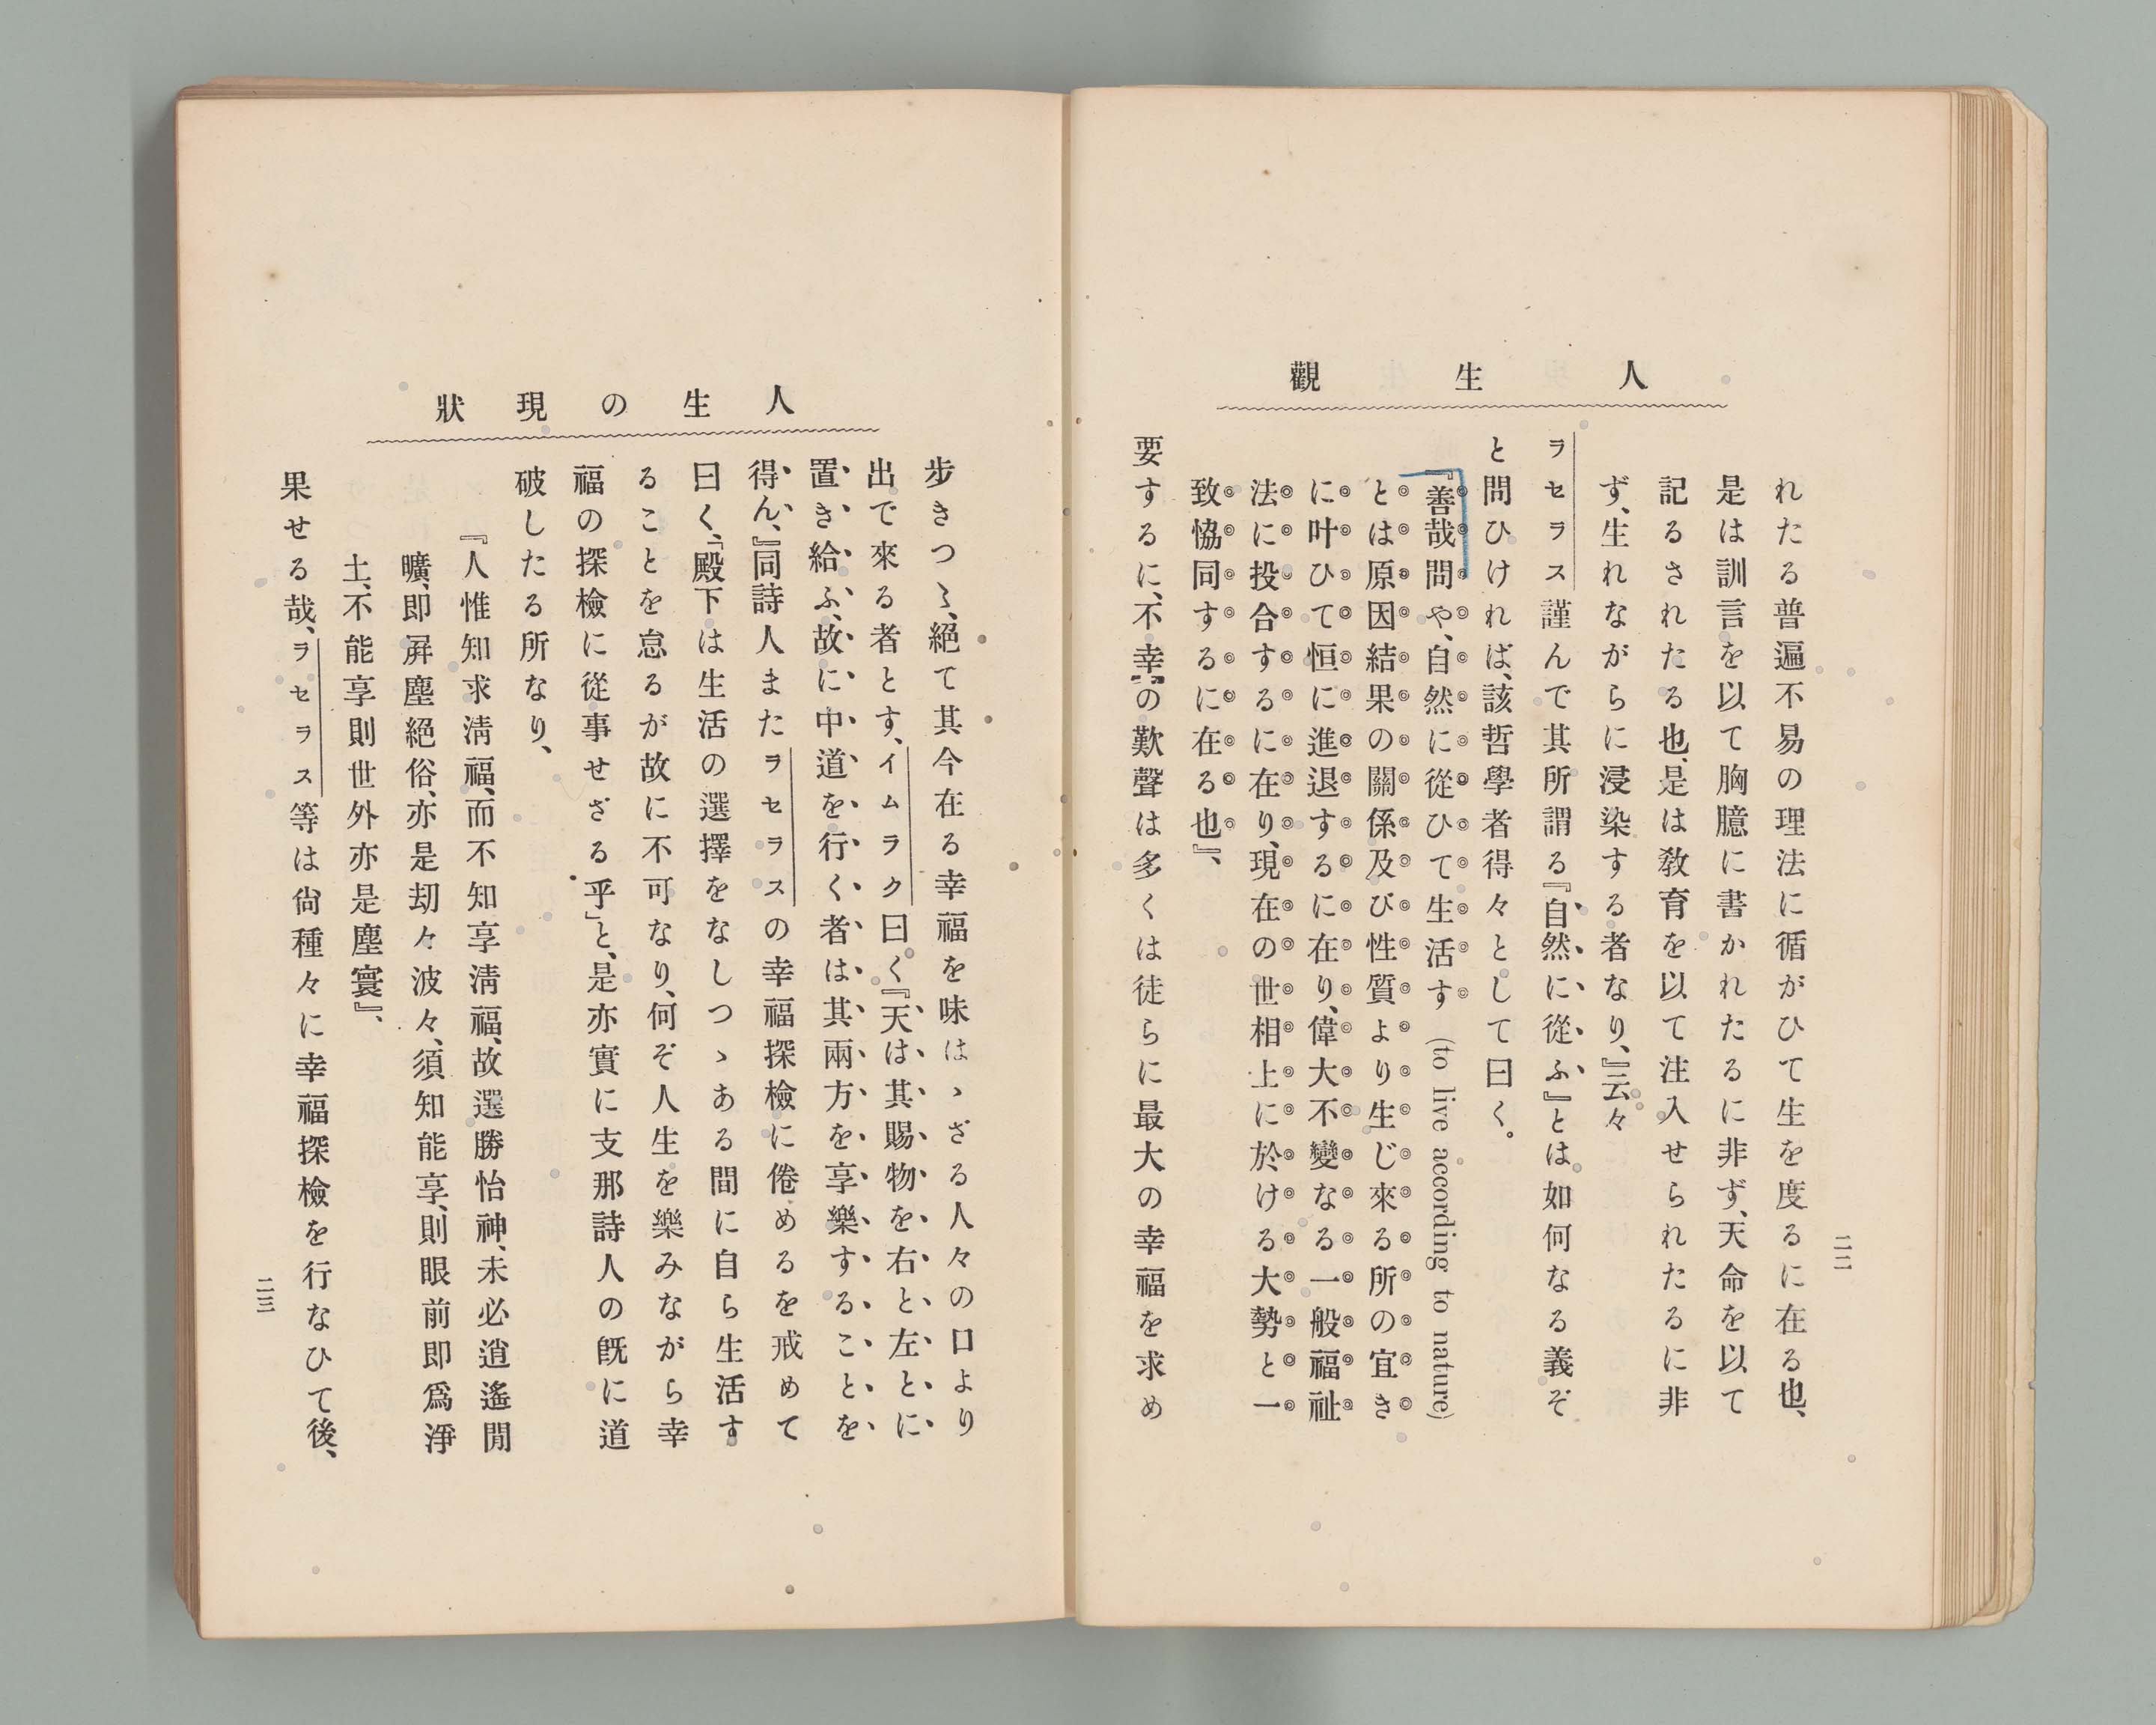 人生觀
二二
れたる普遍不易の理法に循がひて生を度るに在る也、
是は訓言を以て胸臆に書かれたるに非ず、天命を以て
記るされたる也、是は敎育を以て注入せられたるに非
ず、生れながらに浸染する者なり、』云々
ヲセラス謹んで其所謂る『自然に從ふ』とは如何なる義ぞ
と問ひければ、該哲學者得々として曰く。
『善哉問や、自然に從ひて生活す (to live according to nature)
とは原因結果の關係及び性質より生じ來る所の宜き
に叶ひて恒に進退するに在り、偉大不變なる一般福祉
法に投合するに在り、現在の世相上に於ける大勢と一
致協同するに在る也』、
要するに、不幸の歎聲は多くは徒らに最大の幸福を求め
人生の現狀
歩きつゝ、絕て其今在る幸福を味はゝざる人々の口より
出で來る者とす、イムラク曰く『天は其賜物を右と左とに
置き給ふ、故に中道を行く者は其兩方を享樂することを
得ん、』同詩人またヲセヲスの幸福探檢に倦めるを戒めて
曰く、「殿下は生活の選擇をなしつゝある間に自ら生活す
ることを怠るが故に不可なり、何ぞ人生を樂みながら幸
福の探檢に從事せざる乎」と、是亦實に支那詩人の旣に道
破したる所なり、
『人惟知求淸福、而不知享淸福、故選勝怡神、未必逍遙閒
曠、即屛塵絕俗、亦是刧々波々、須知能享、則眼前即爲淨
土、不能享則世外亦是塵寰』、
果せる哉、ヲセヲス等は尙種々に幸福探檢を行なひて後、
二三